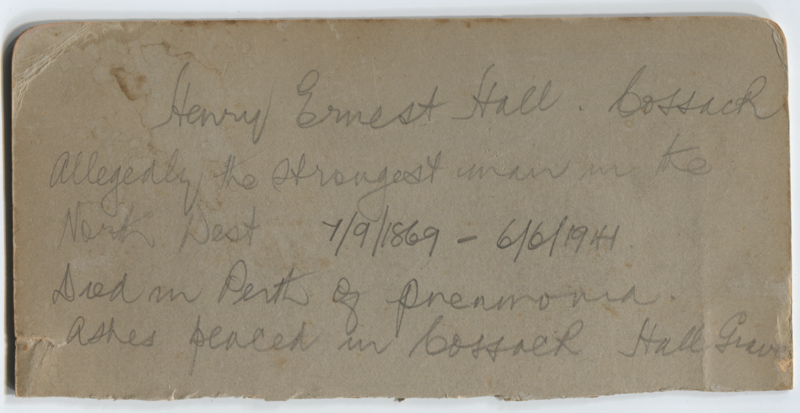 Henry Ernest Hall. Cossack
Allegedly the strongest man in the
North West 7/9/1869 - 6/6/1941.
Died in Perth of pneumonia.
Ashes placed in Cossack Hall Grave